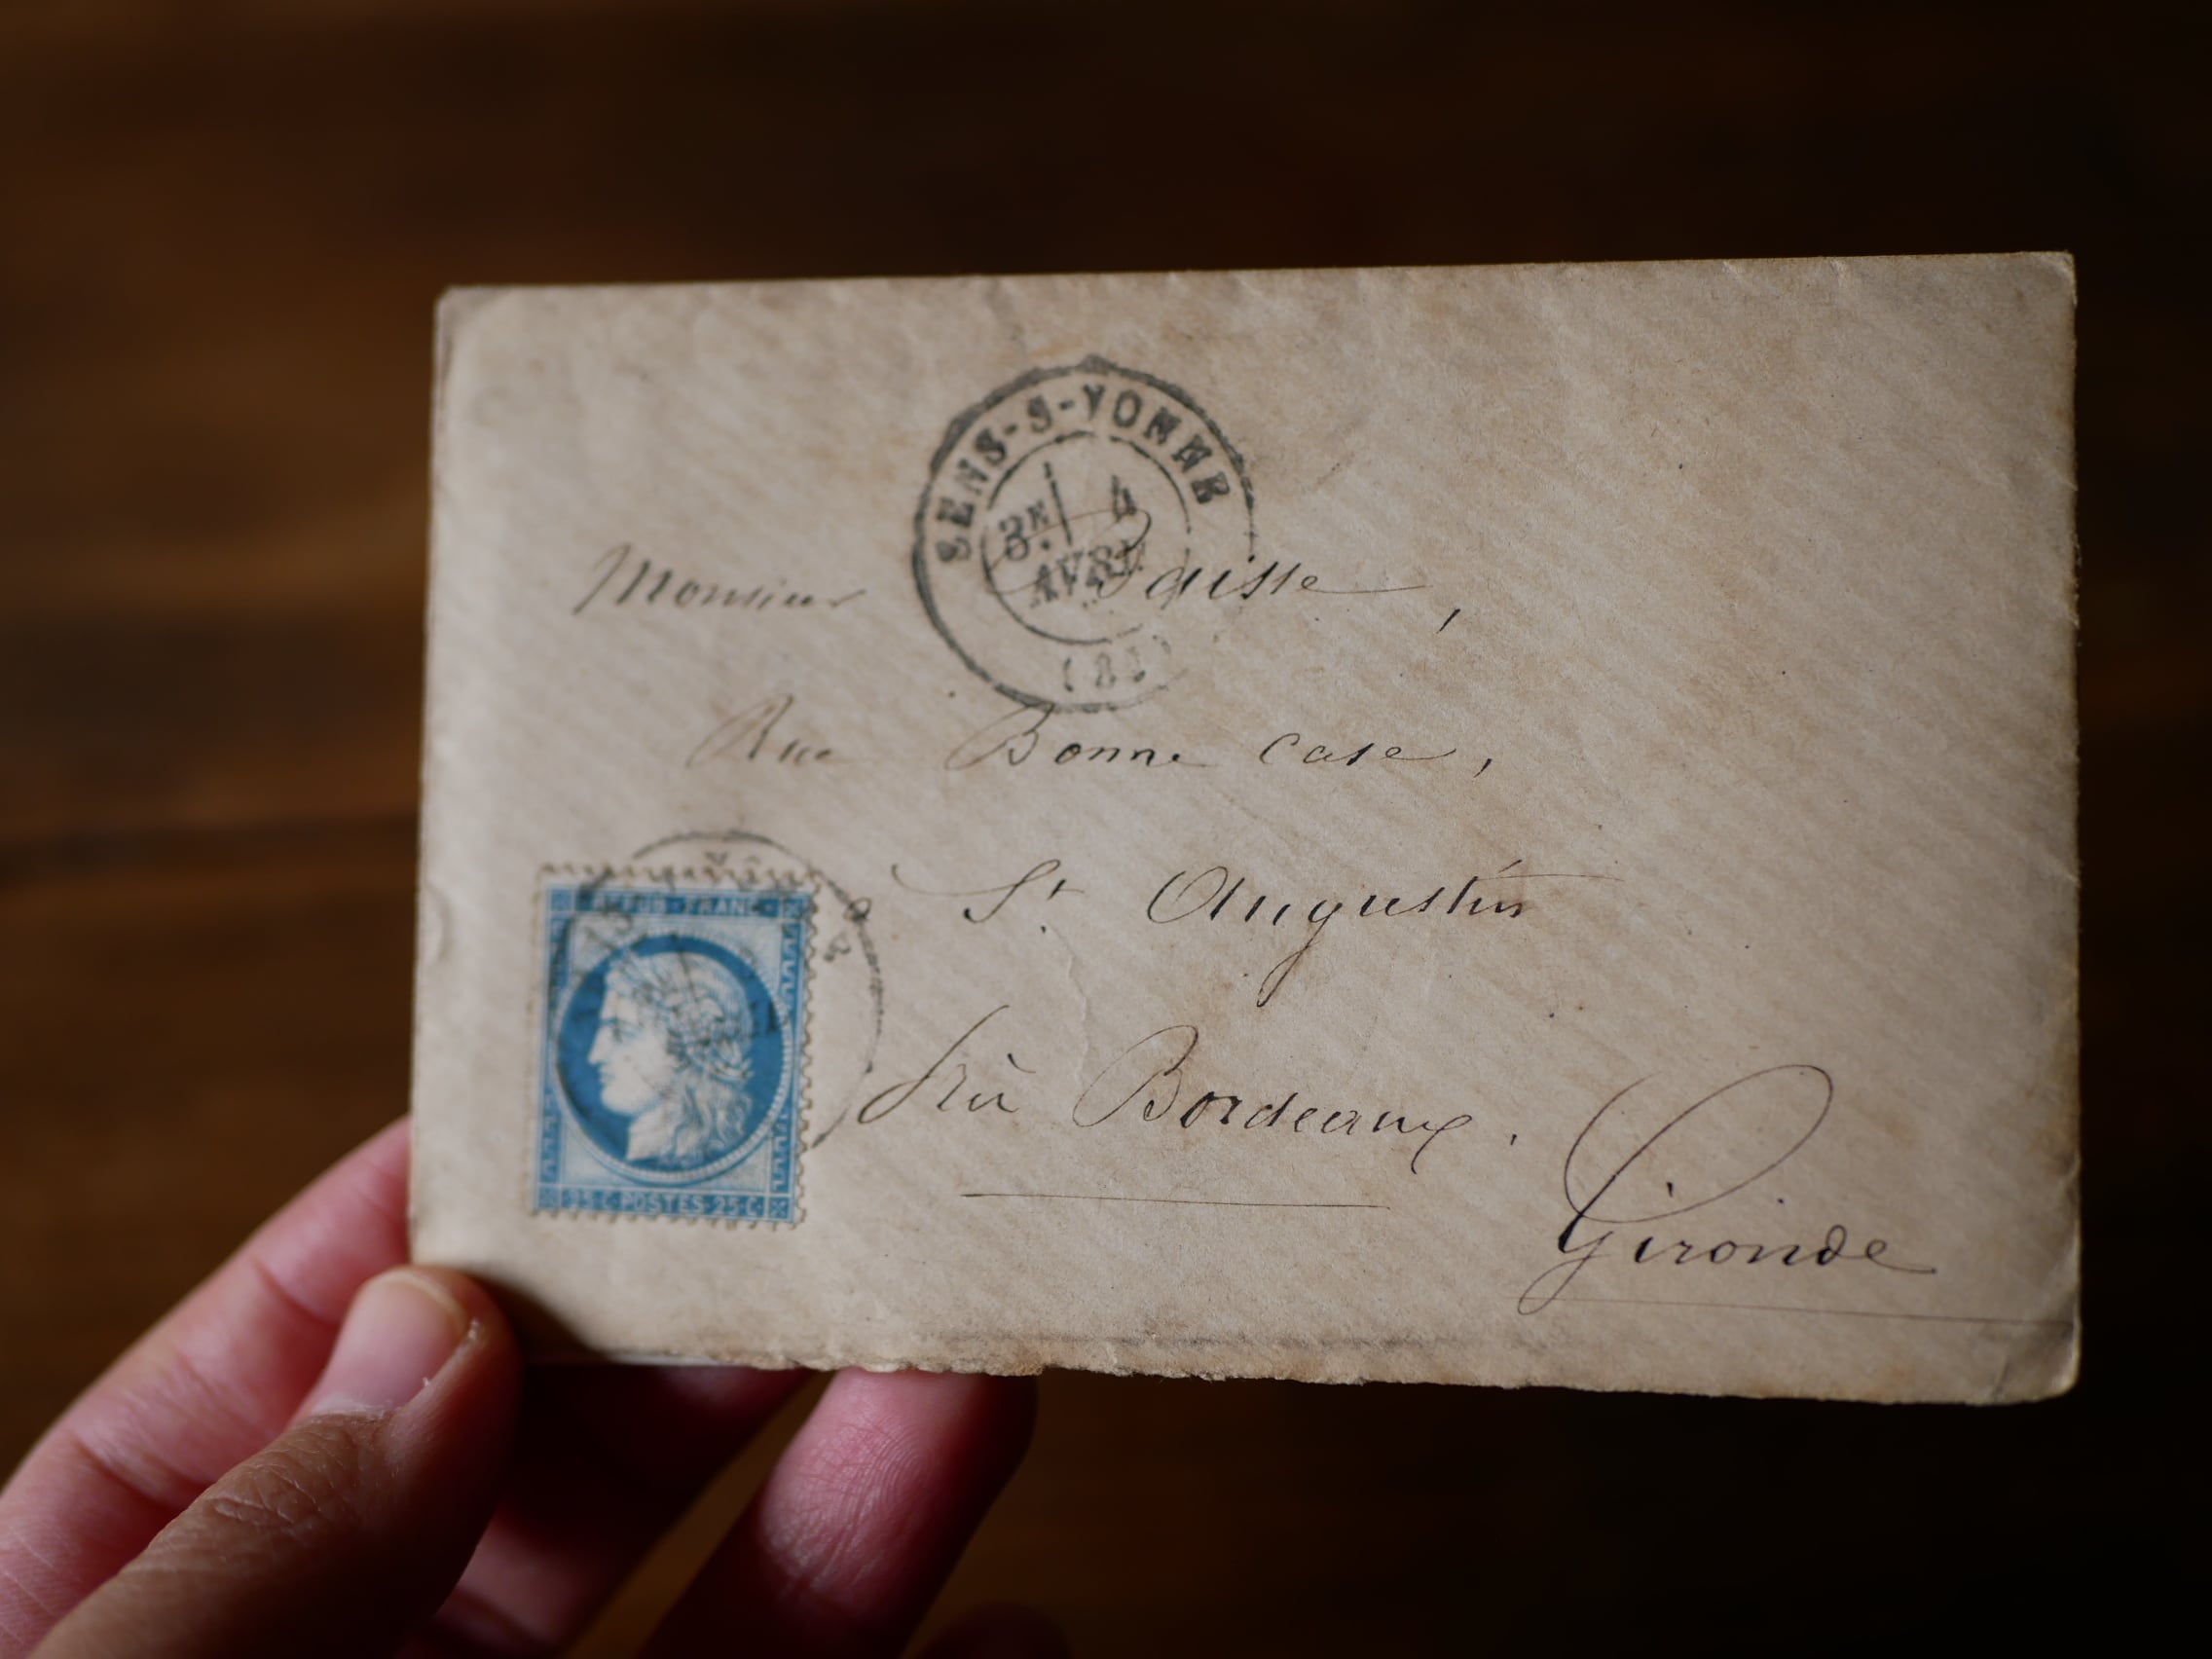 SENS-S-YONNE
3E 4
AVRIL
(81)
Monsieur
Rue Bonne Case,
St. Augustin
près Bordeaux.
Gironde
REPUB·FRANC·
25·C·POSTES·25·C